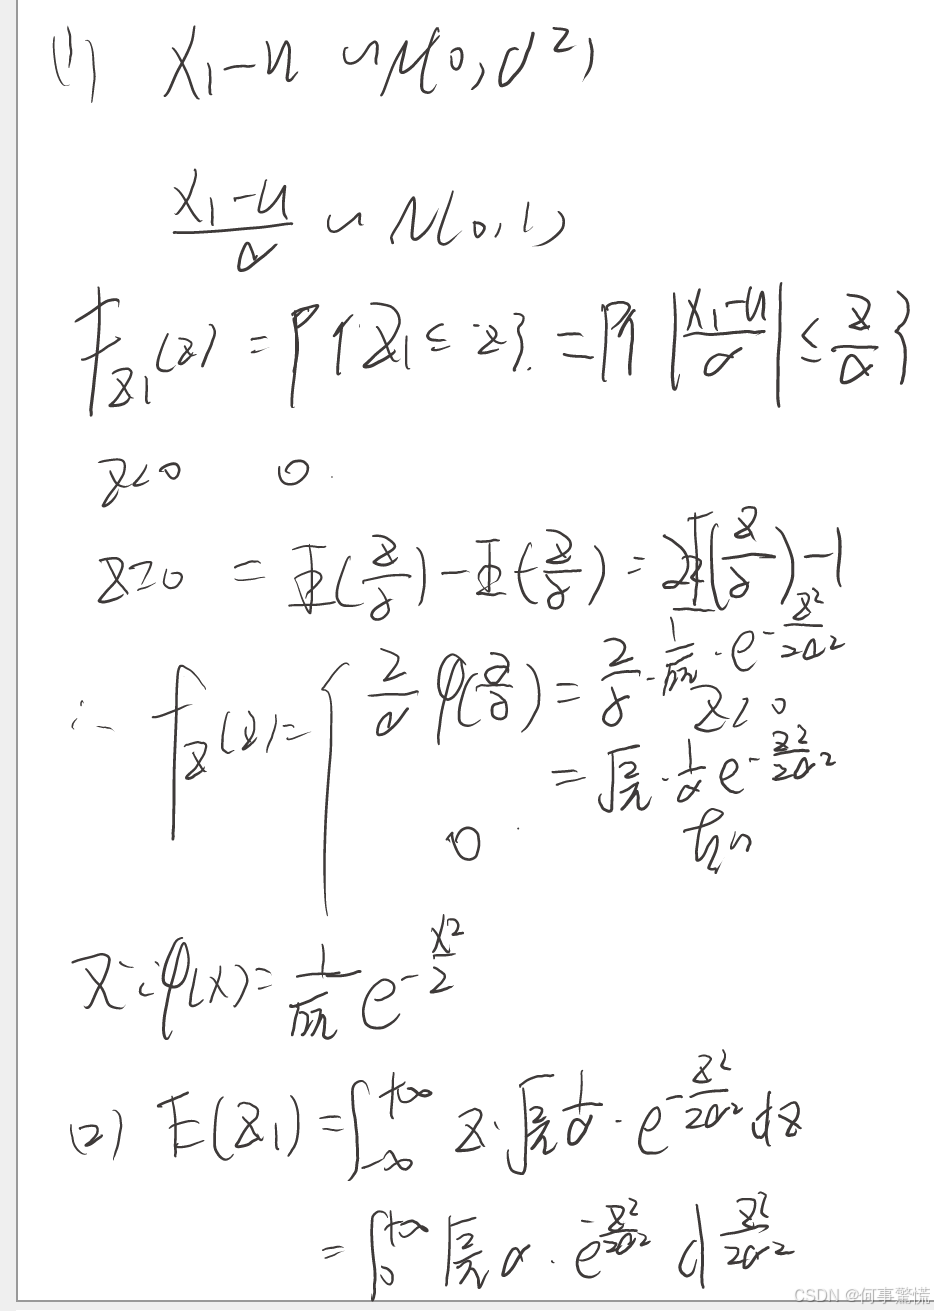 (1) X₁-u ~ N(0, σ²)
(X₁-u)/σ ~ N(0,1)
F_Z₁(z) = P{Z₁ ≤ z} = P{|(X₁-u)/σ| ≤ z/σ}
z<0 0
z≥0 = Φ(z/σ) - Φ(z/σ) = 2Φ(z/σ) - 1
∴ f_Z(z) = { 2/σ φ(z/σ) = 2/σ · 1/√2π · e^(-z²/2σ²)
z>0
= √(2/π) · 1/σ e^(-z²/2σ²)
0
又∵φ(x) = 1/√2π e^(-x²/2)
(2) E(Z₁) = ∫_{-∞}^{+∞} z · √(2/π) 1/σ · e^(-z²/2σ²) dz
= ∫_0^{+∞} √(2/π) σ · e^(-z²/2σ²) d z²/2σ²
CSDN @何事驚慌